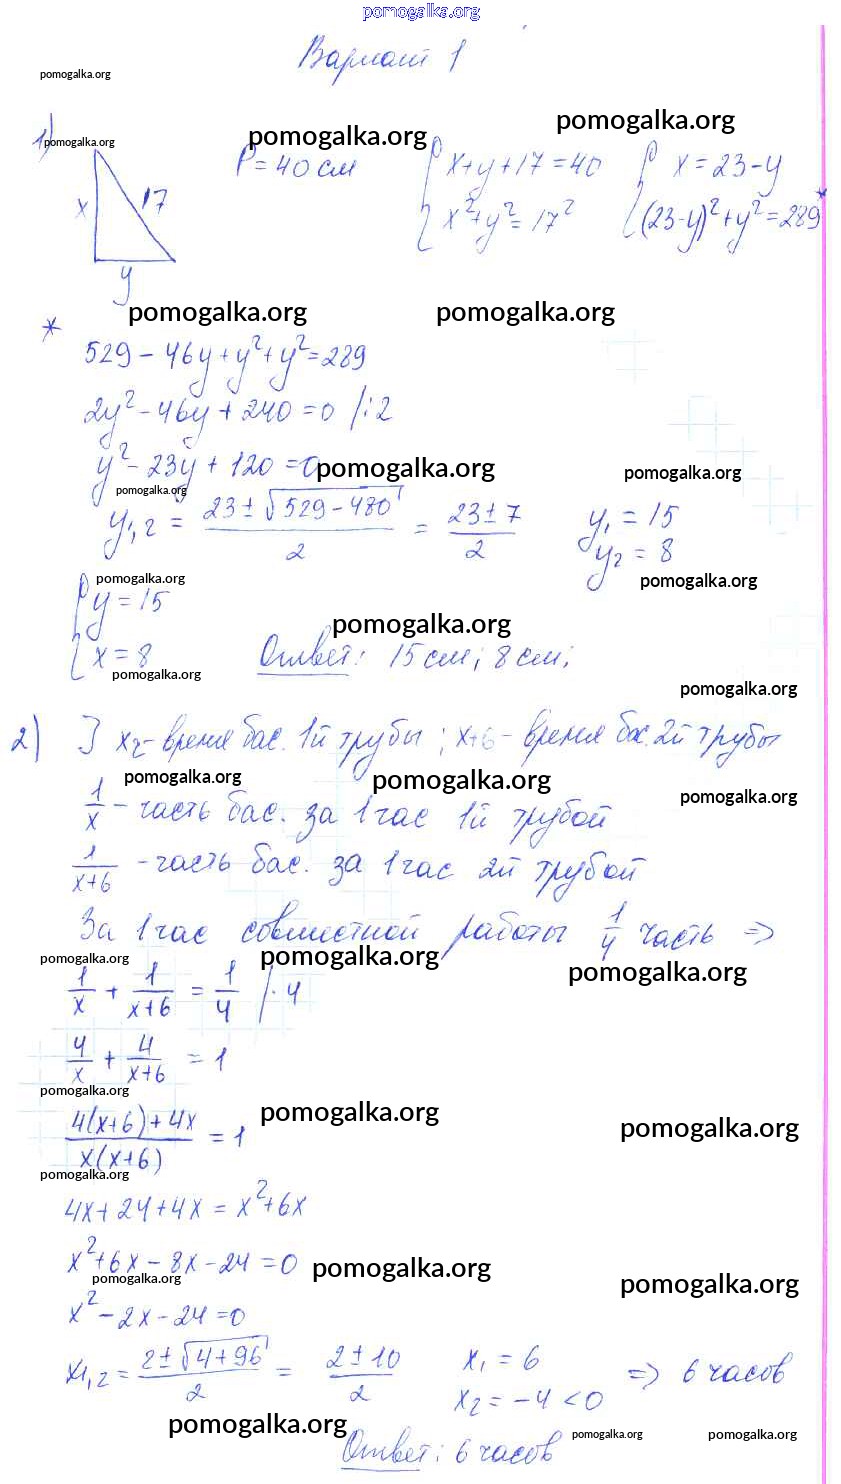 pomogalka.org
Вариант 1
pomogalka.org
1)
pomogalka.org
x 17
y
P = 40 см
pomogalka.org
pomogalka.org
{ x + y + 17 = 40
x² + y² = 17²
{ x = 23 - y
(23-y)² + y² = 289 *
pomogalka.org pomogalka.org
*
529 - 46y + y² + y² = 289
2y² - 46y + 240 = 0 /:2
y² - 23y + 120 = 0
pomogalka.org pomogalka.org
pomogalka.org
y1,2 = (23 ± √(529 - 480))/2 = (23 ± 7)/2 y₁ = 15
y₂ = 8
pomogalka.org pomogalka.org
{ y = 15
x = 8
pomogalka.org
Ответ: 15 см; 8 см;
pomogalka.org
pomogalka.org
2) - время бас. 1й трубы; x+6 - время бас. 2й трубы
pomogalka.org pomogalka.org pomogalka.org
1/x - часть бас. за 1 час 1й трубой
1/(x+6) - часть бас. за 1 час 2й трубой
За 1 час совместной работы 1/4 часть =>
pomogalka.org pomogalka.org pomogalka.org
1/x + 1/(x+6) = 1/4 /·4
4/x + 4/(x+6) = 1
pomogalka.org pomogalka.org pomogalka.org
(4(x+6)+4x)/(x(x+6)) = 1
pomogalka.org
4x + 24 + 4x = x² + 6x
x² + 6x - 8x - 24 = 0
pomogalka.org pomogalka.org pomogalka.org
x² - 2x - 24 = 0
x1,2 = (2 ± √(4 + 96))/2 = (2 ± 10)/2 x₁ = 6
x₂ = -4 < 0 => 6 часов
pomogalka.org pomogalka.org pomogalka.org
Ответ: 6 часов